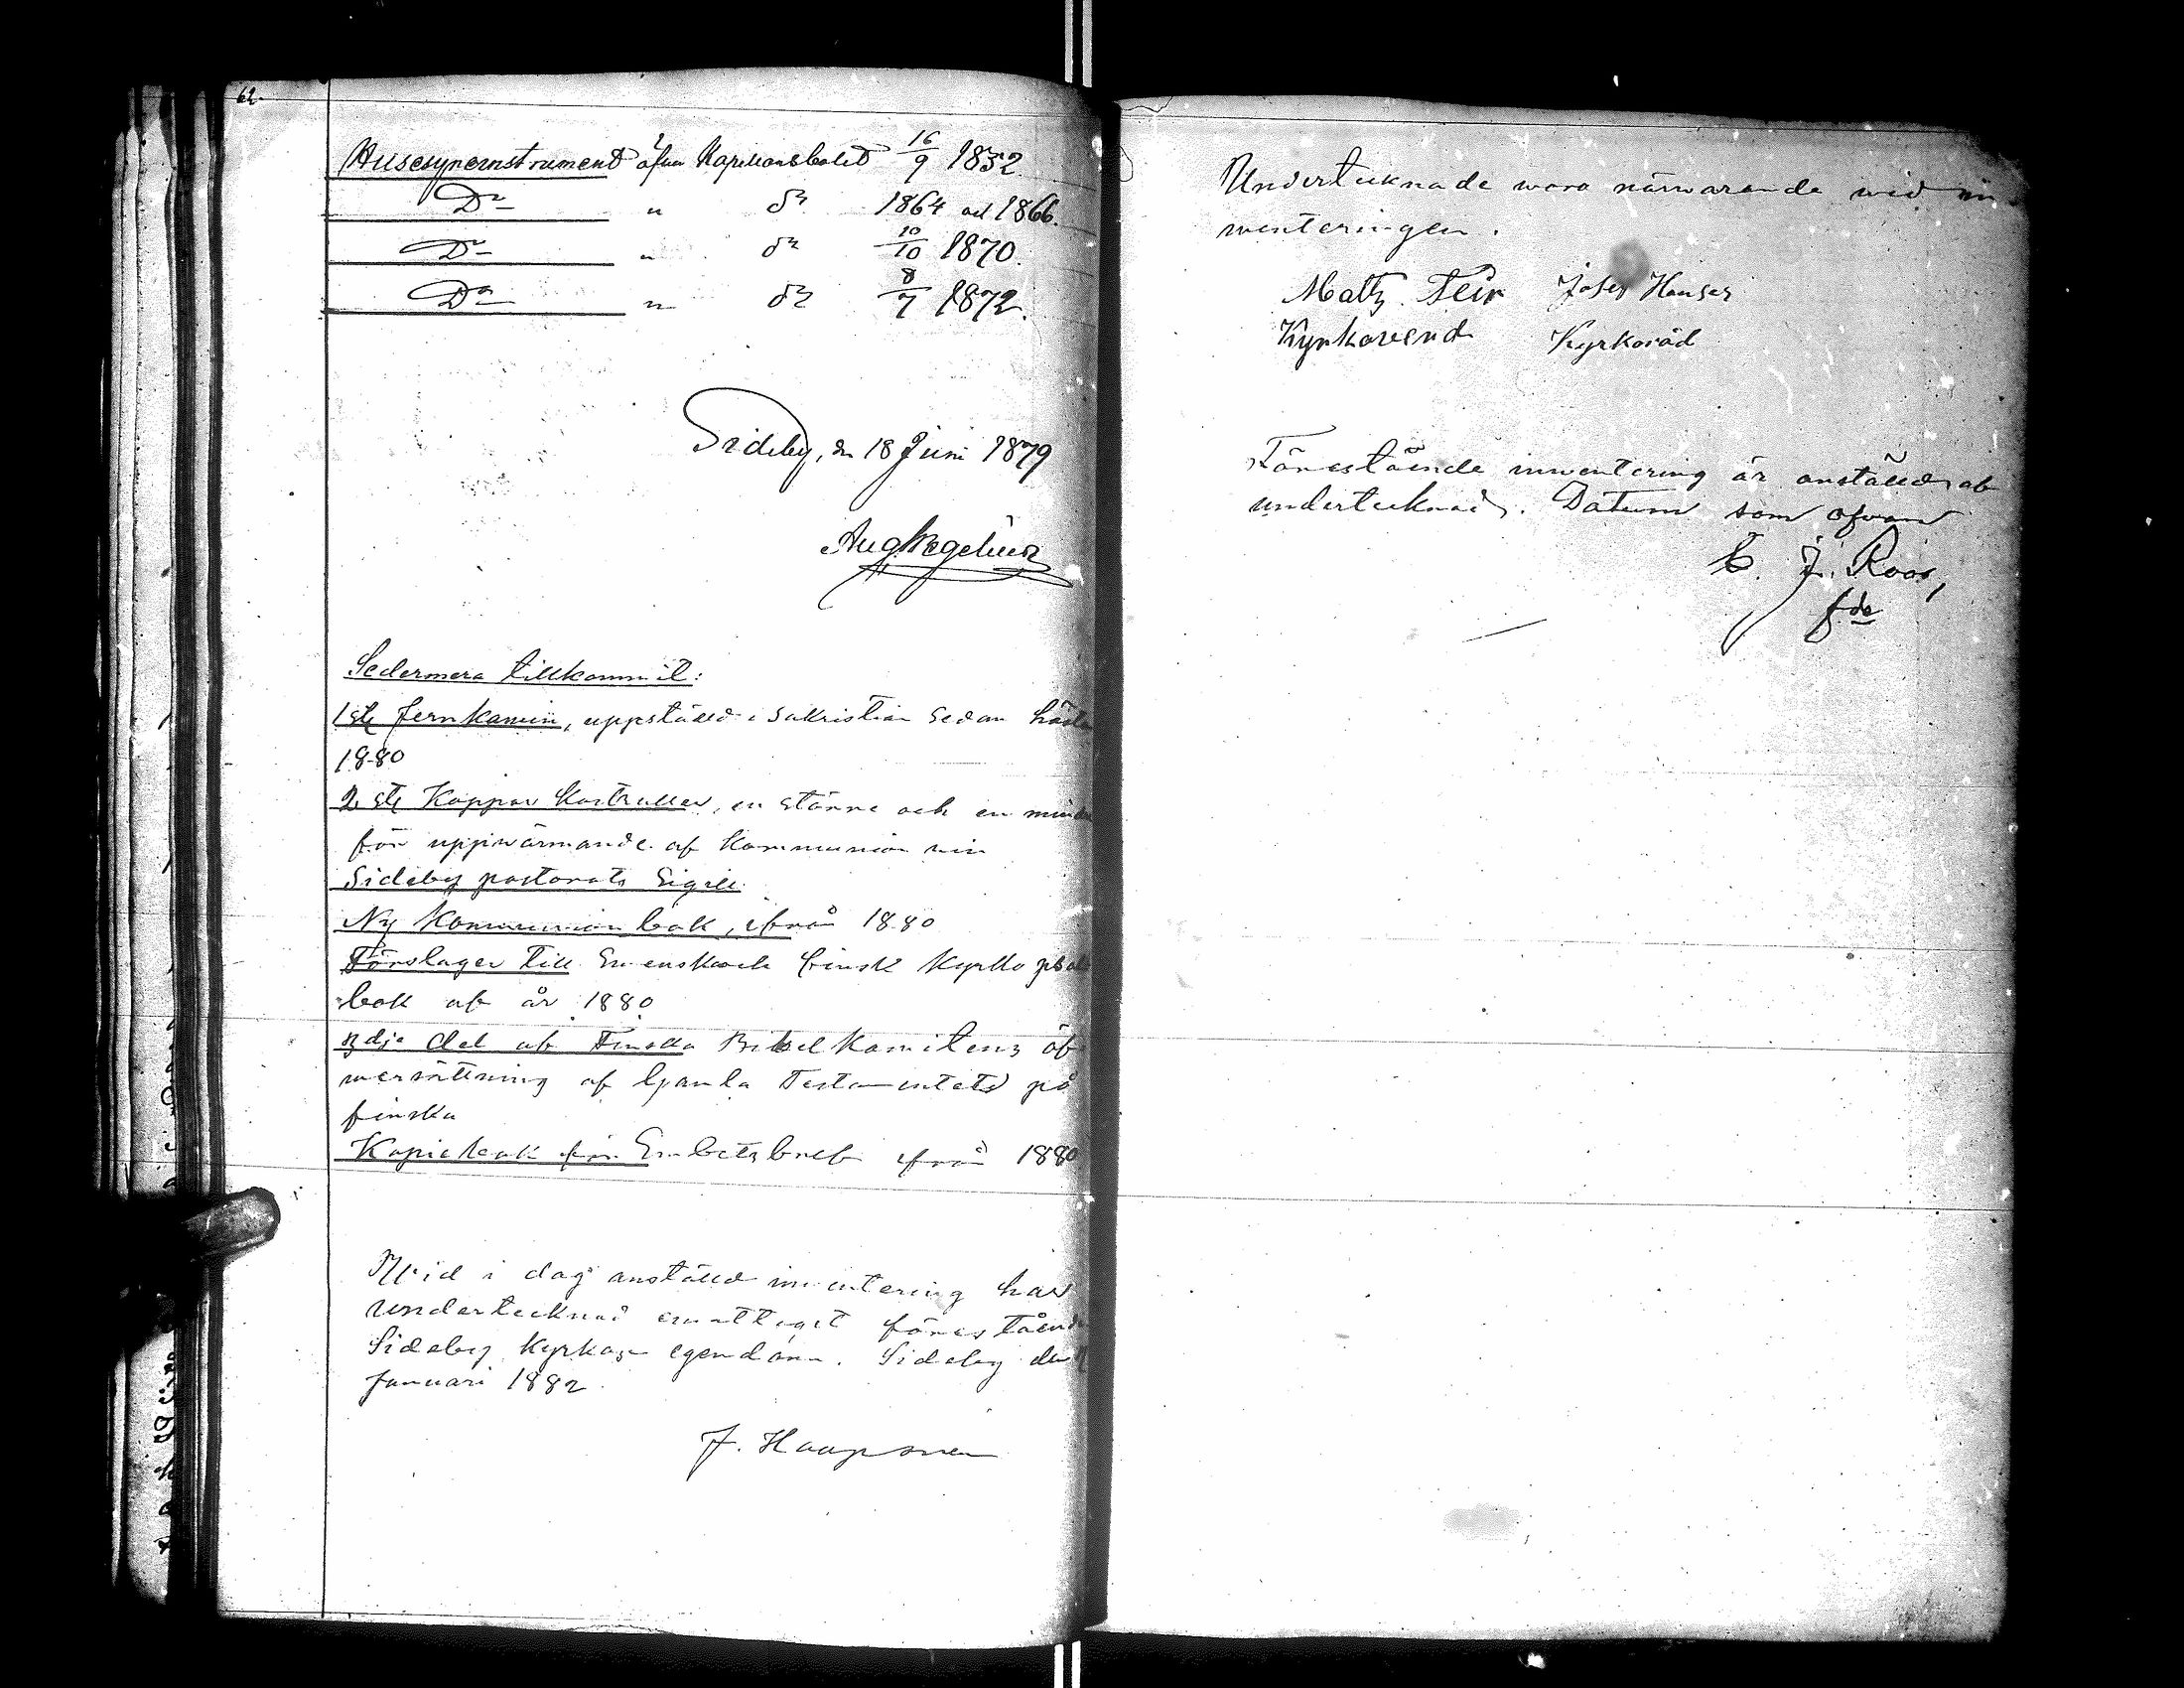 62.
Husesyneinstrument öfver Kapellansbolet 16/9 1852.
Do " do 1864 och 1866.
Do " do 10/10 1870.
Do " do 8/7 1872.
Sideby, den 18 Juni 1879
Aug Hegelius
Sedermera tillkommit:
1 st. Jernkamin, uppställd i sakristian sedan
1880
2 st. Koppar kastruller, en större och en
för uppwärmande af kommunion win
Sideby pastorats Sigill.
Ny Kommunion bok, ifrån 1880
Förslager till Swensk och finsk Kyrko
bok af år 1880
3dje del af Finska Bibel Komitens öf
wersättning af Gamla Testamentet på
finska
Kopie bok för Embetsbref ifrån 1880
Wid i dag anställd inwentering har
undertecknad emottagit förestående
Sideby Kyrkas egendom. Sideby den
Januari 1882.
J. Haapanen
Undertecknade woro närwarande wid in
wenteringen.
Matts Teir Josef Hanses
Kyrkovärd Kyrkoråd
Förestående inwentering är anställd af
undertecknad. Datum som ofvan
C. J. Roos,
fde